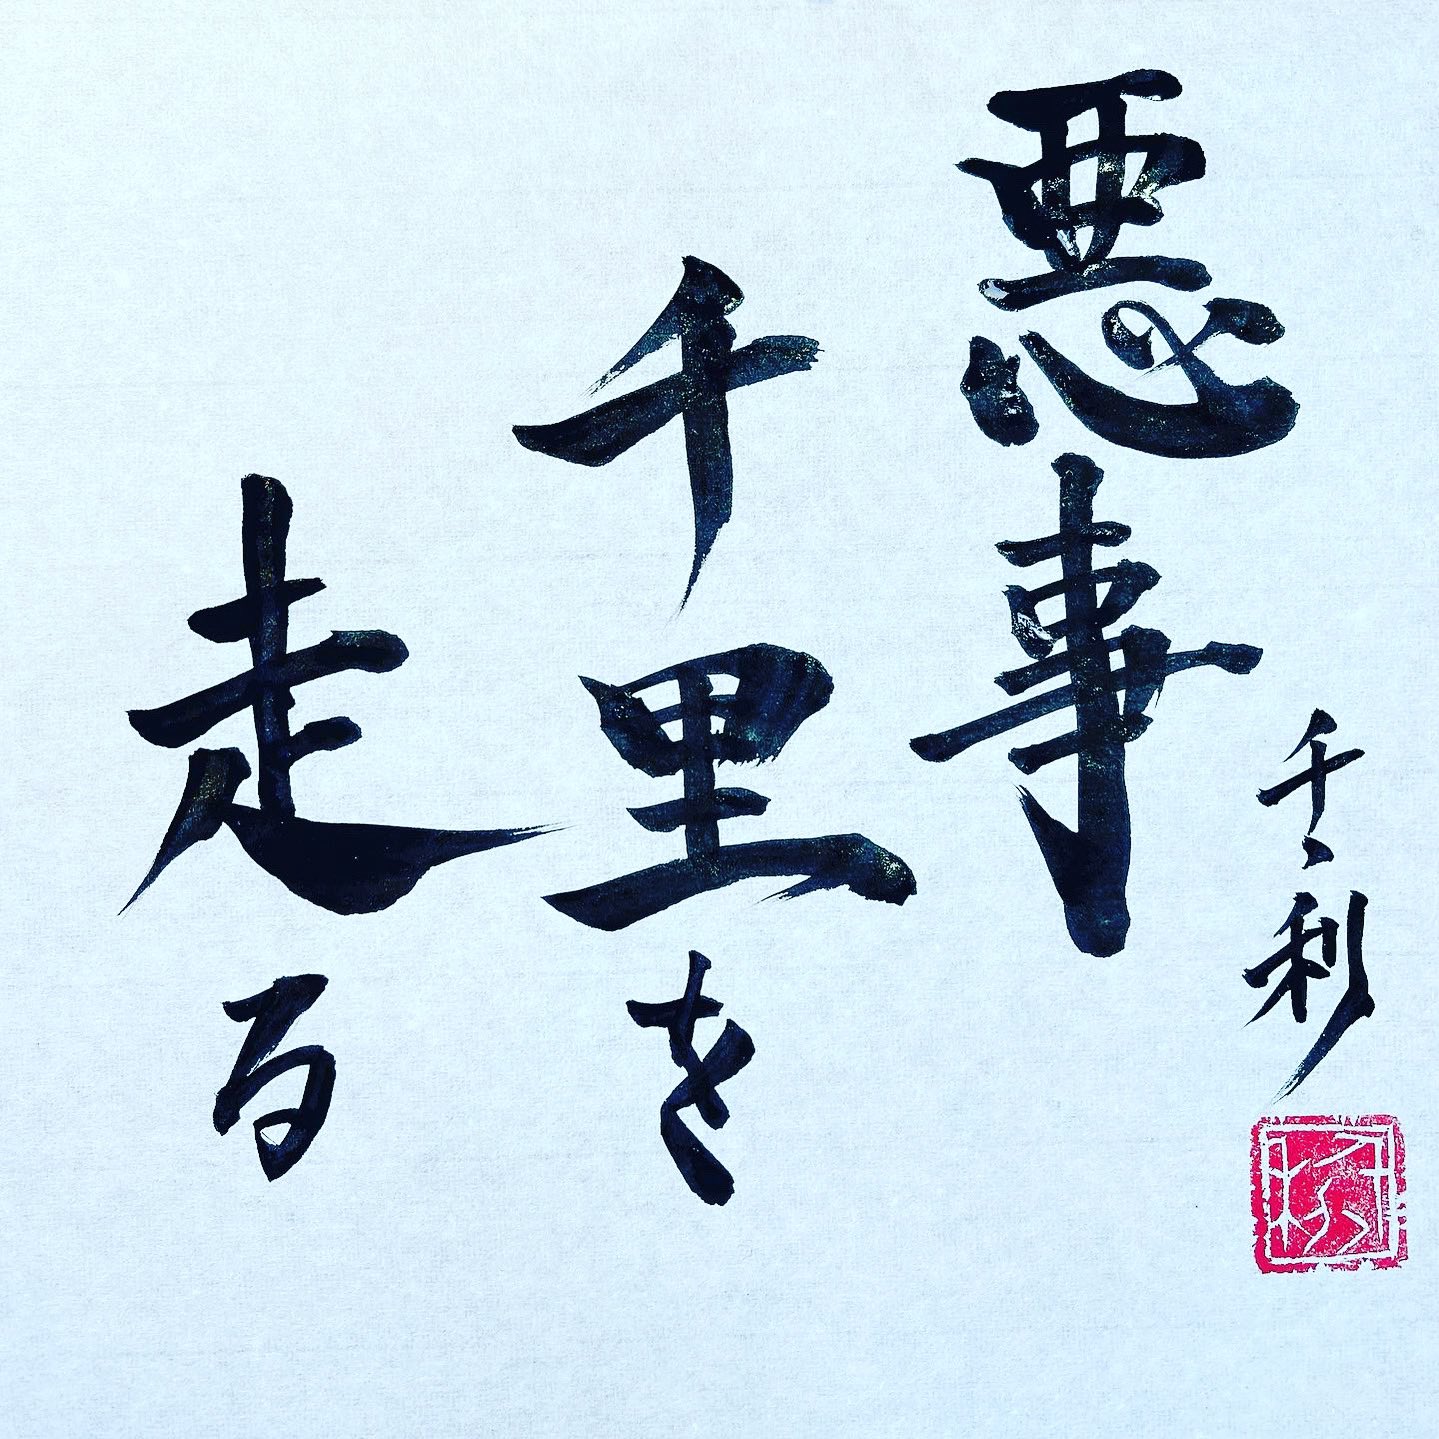 悪事
千里を
走る
千々利